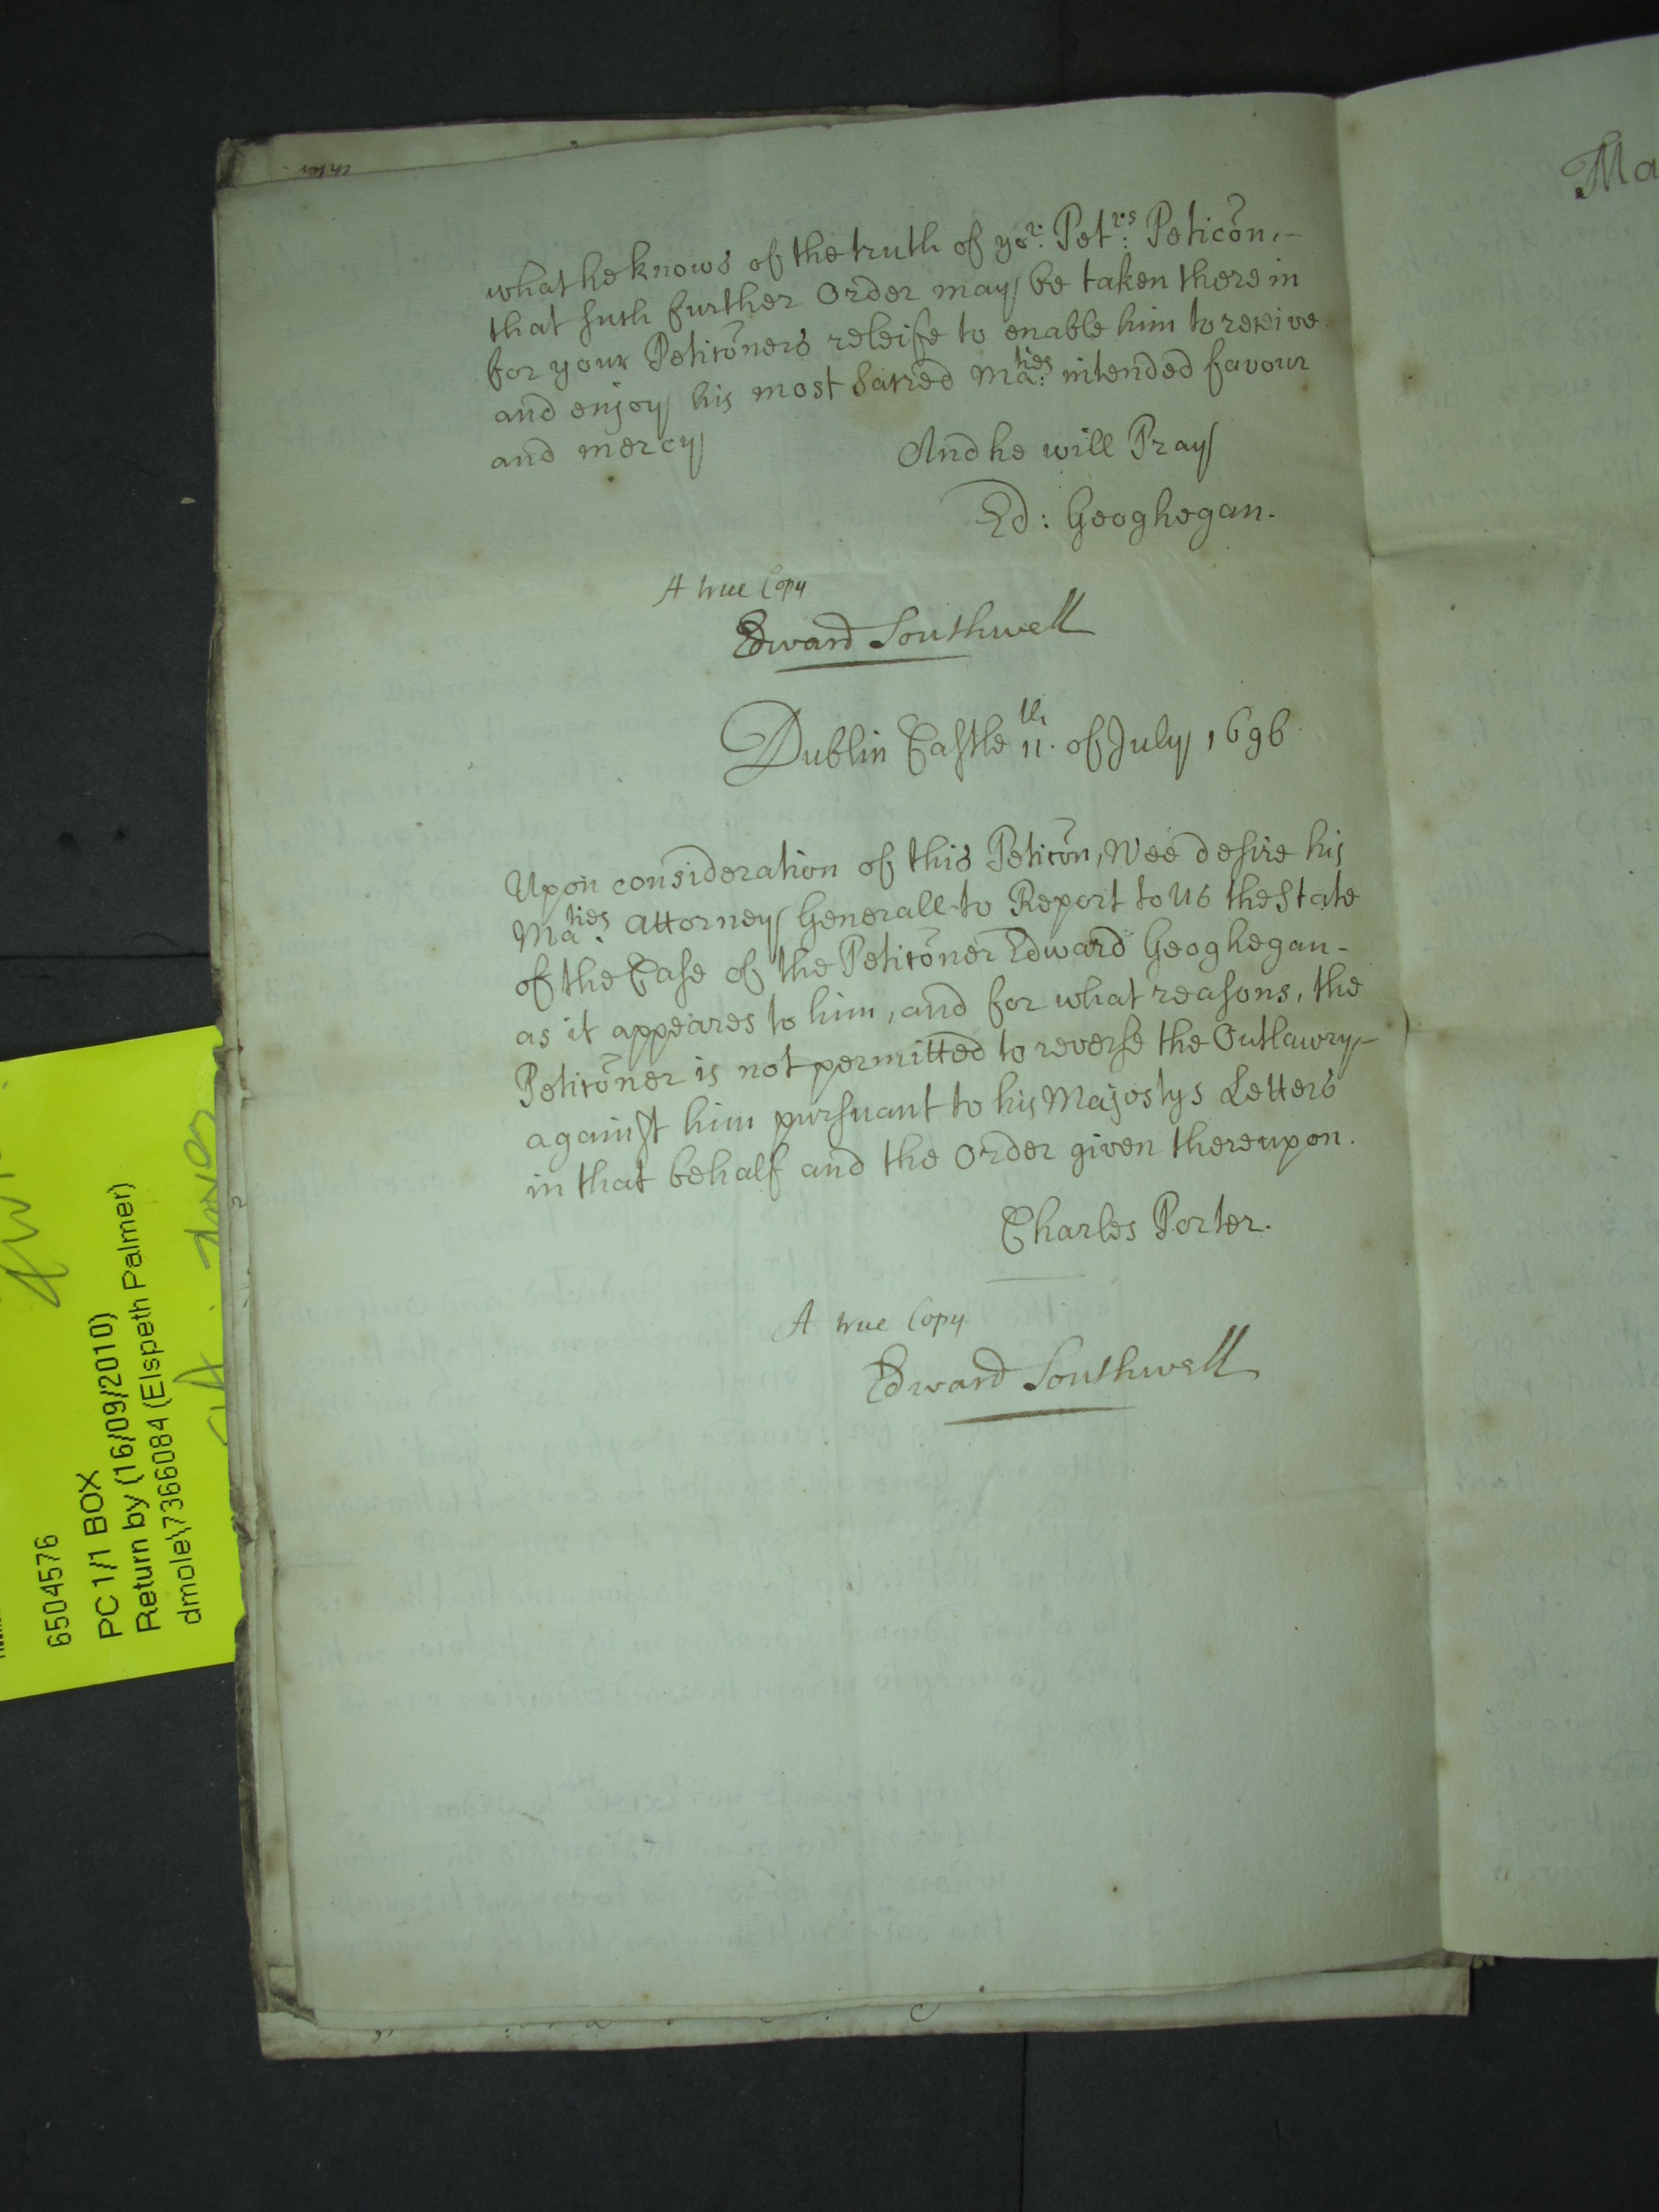 what he knows of the truth of yor: Petrs: Peticõn,-
that such further Order may be taken therein
for your Peticõners releife to enable him to receive
and enjoy his most Sacred Maties: intended favour
and mercy
And he will Pray
Ed: Geoghegan.
A true Copy
Edward Southwell
Dublin Castle 11th. of July 1696
Upon consideration of this Peticõn, Wee desire his
Maties. Attorney Generall to Report to Us the State
of the Case of the Peticõner Edward Geoghegan-
as it appeares to him, and for what reasons, the
Peticõner is not permitted to reverse the Outlawry-
against him pursuant to his Majestys Letters
in that behalf and the Order given thereupon.
Charles Porter.
A true Copy
Edward Southwell
Ma
6504576
PC 1/1 BOX
Return by (16/09/2010)
dmole\7366084 (Elspeth Palmer)